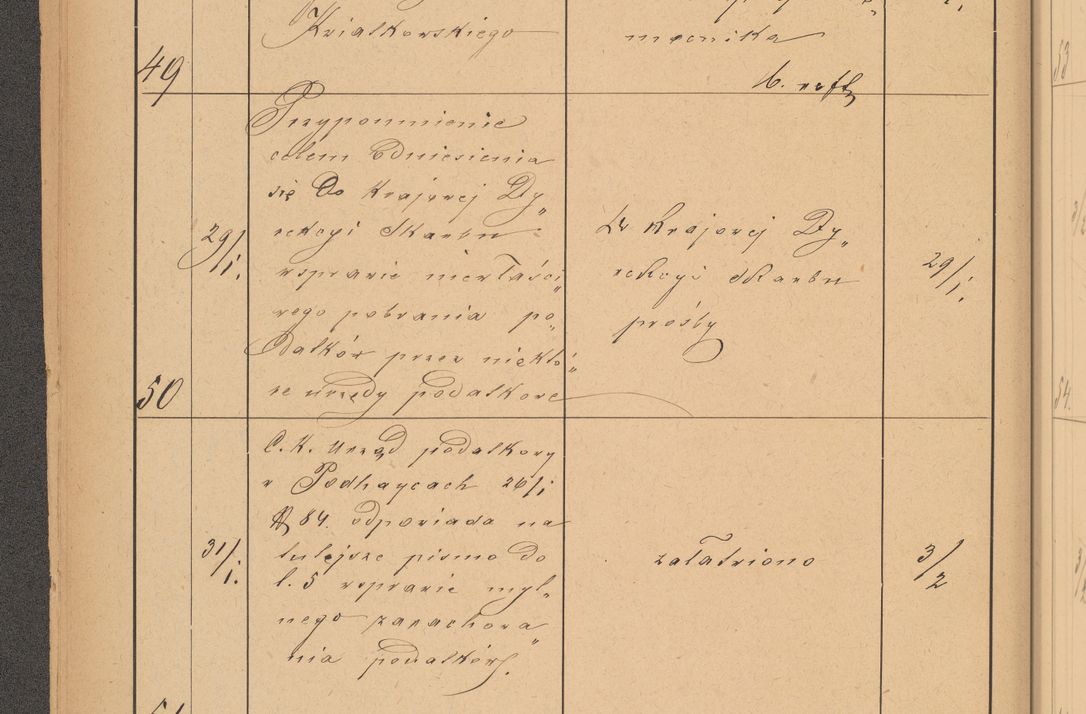 Kwialkowskiego
mocnika
49
Przypomnienie
celem wniesienia
się do krajowej Dy„
rekcyi Skarbu
wsprawie niewłaści„
wego pobrania po„
datków przez niektó„
re urzędy podatkowe
29/1.
Do krajowej Dy„
rekcyi Skarbu
prośby
29/1.
50
C. K. Urząd podatkowy
w Podhaycach 26/1
N 84. odpowiada na
tutejsze pismo do
l. 5 wsprawie myl„
nego zarachowa„
nia podatków.
31/1.
załatwiono
3/2
51
53
54.